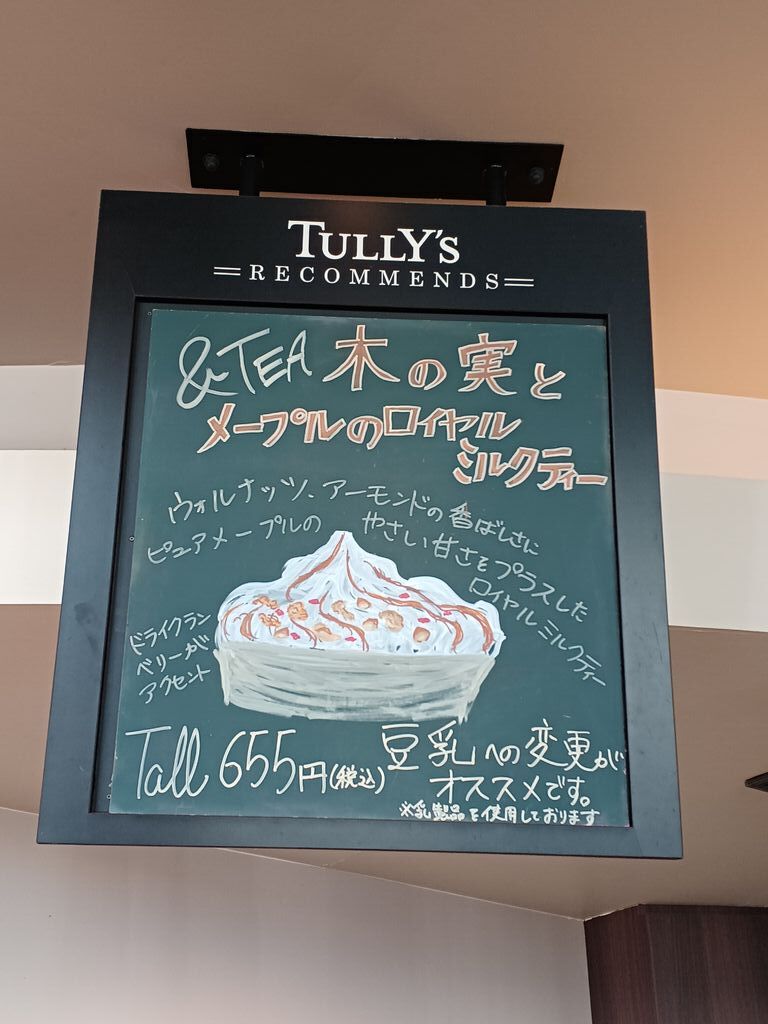 TULLY'S
RECOMMENDS
&TEA 木の実と
メープルのロイヤル
ミルクティー
ウォルナッツ、アーモンドの香ばしさに
ピュアメープルの やさしい甘さをプラスした
ロイヤルミルクティー
ドライクラン
ベリーが
アクセント
Tall 655円(税込)
豆乳への変更が
オススメです。
※乳製品を使用しております